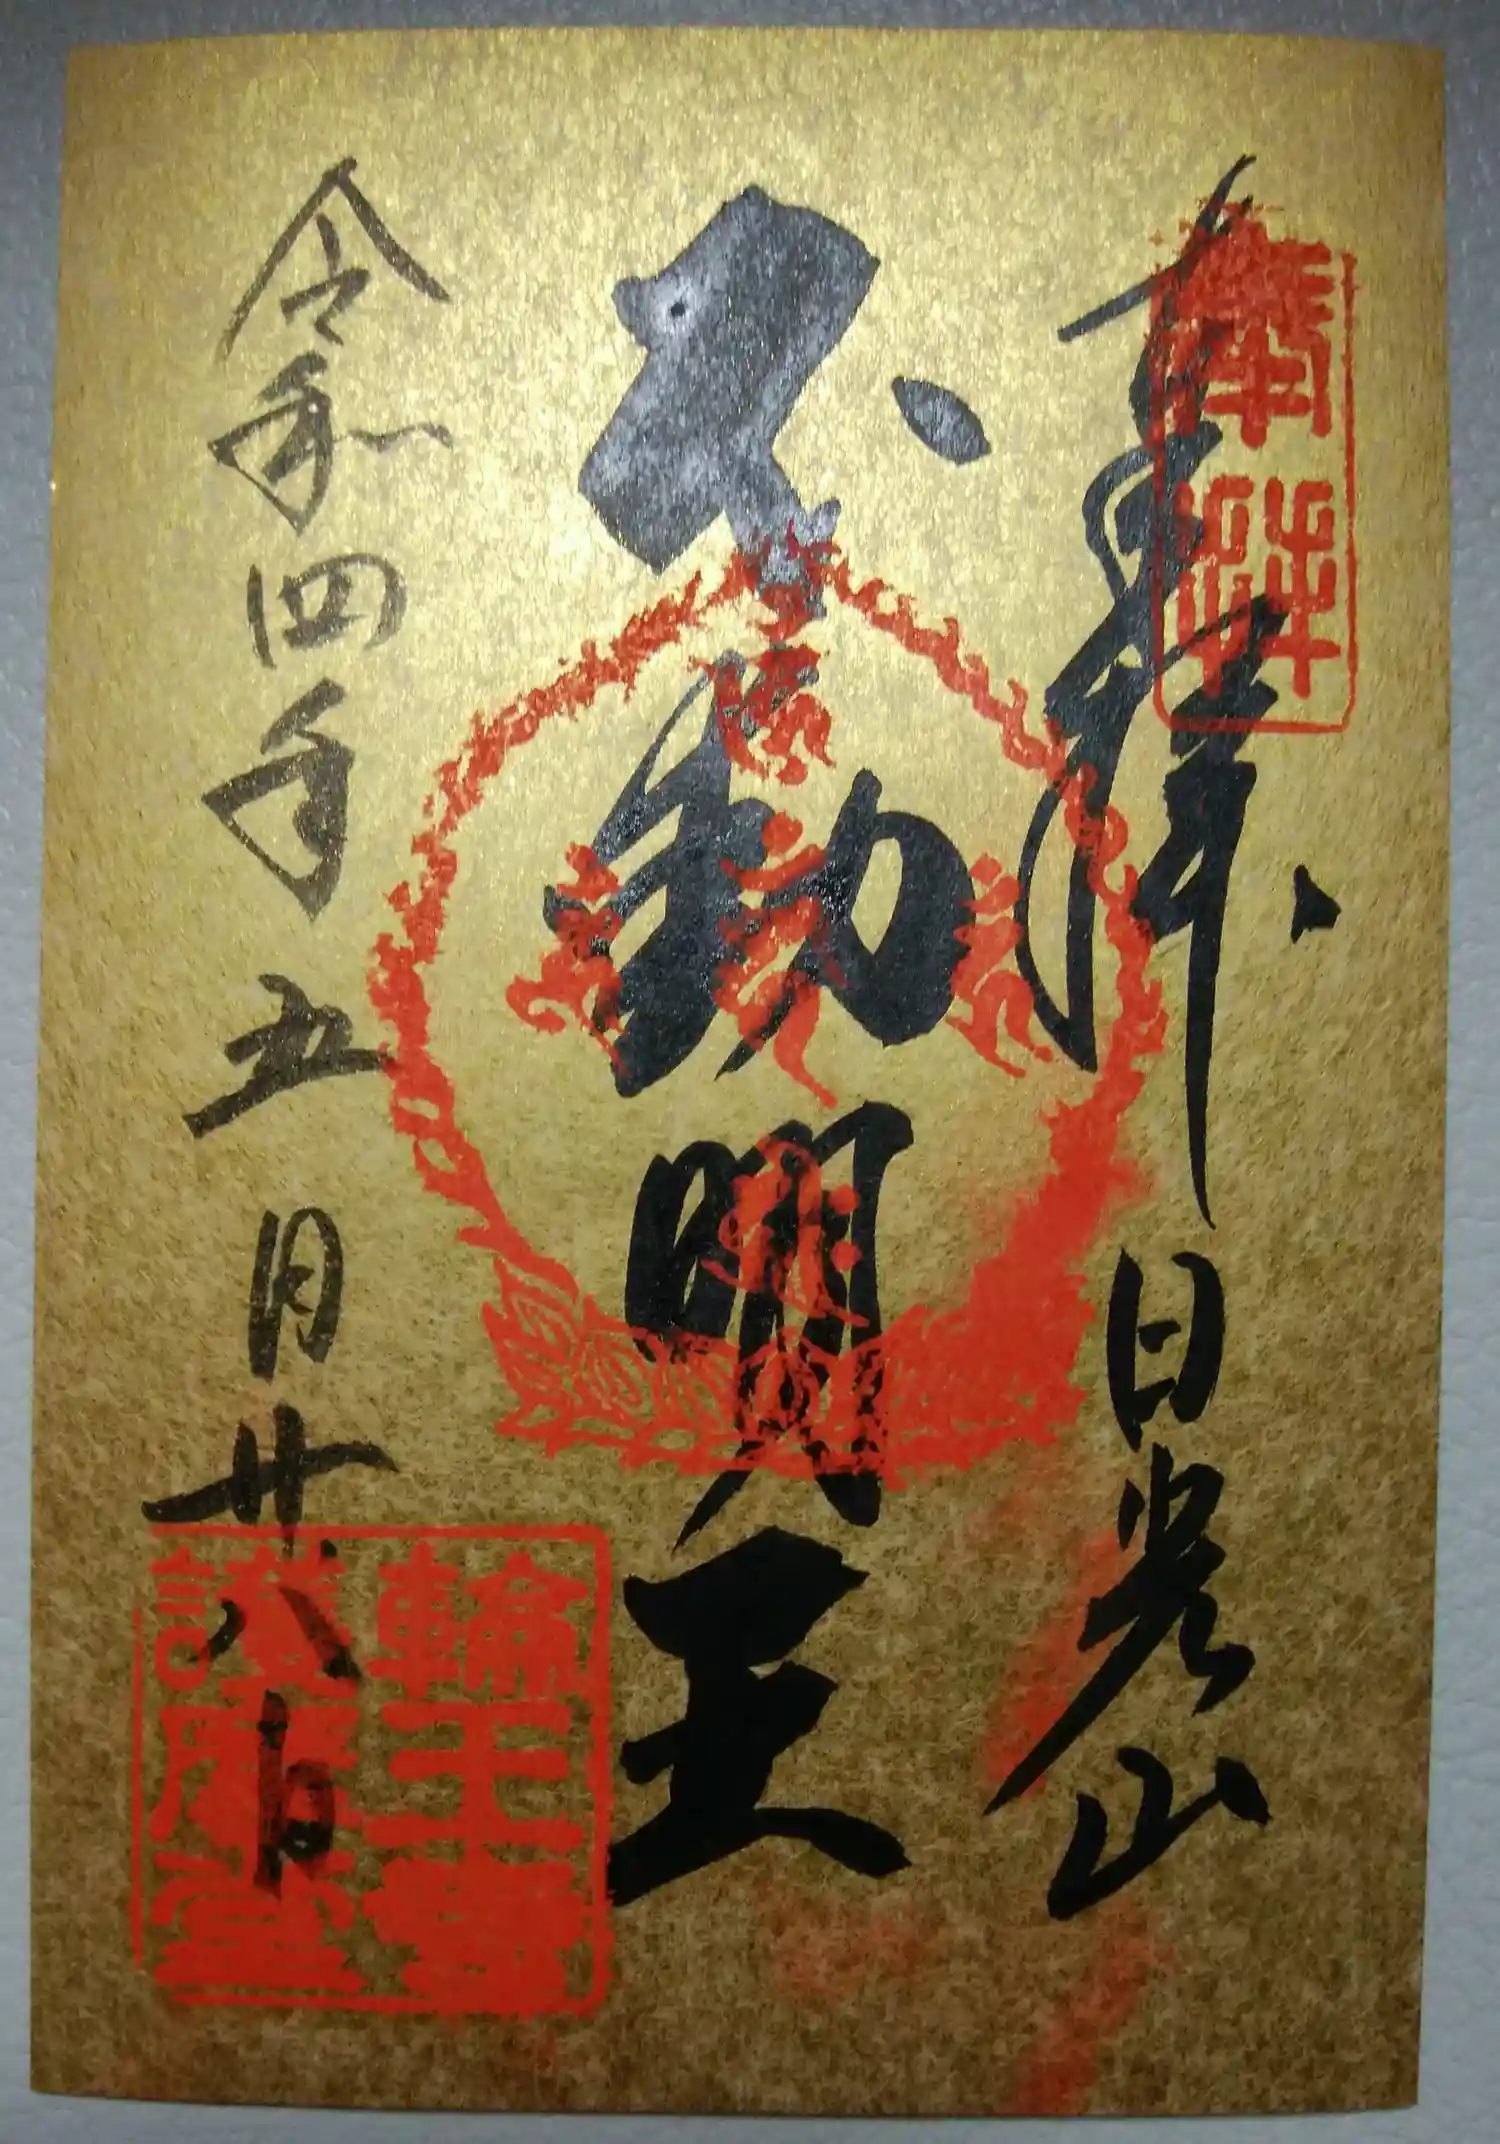 奉拝
奉拝
日光山
不動明王
令和四年五月廿八日
輪王寺
護摩堂